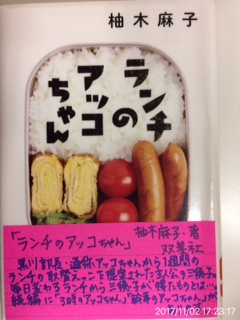 柚木麻子
ランチの
アッコ
ちゃん
「ランチのアッコちゃん」 柚木麻子・著
双葉社
黒川部長・通称アッコちゃんから1週間の
ランチの取替えっこを提案された主人公三智子。
毎日変わるランチから三智子が得たものとは…
続編に「3時のアッコちゃん」「幹事のアッコちゃん」が
2017/11/02 17:23:17